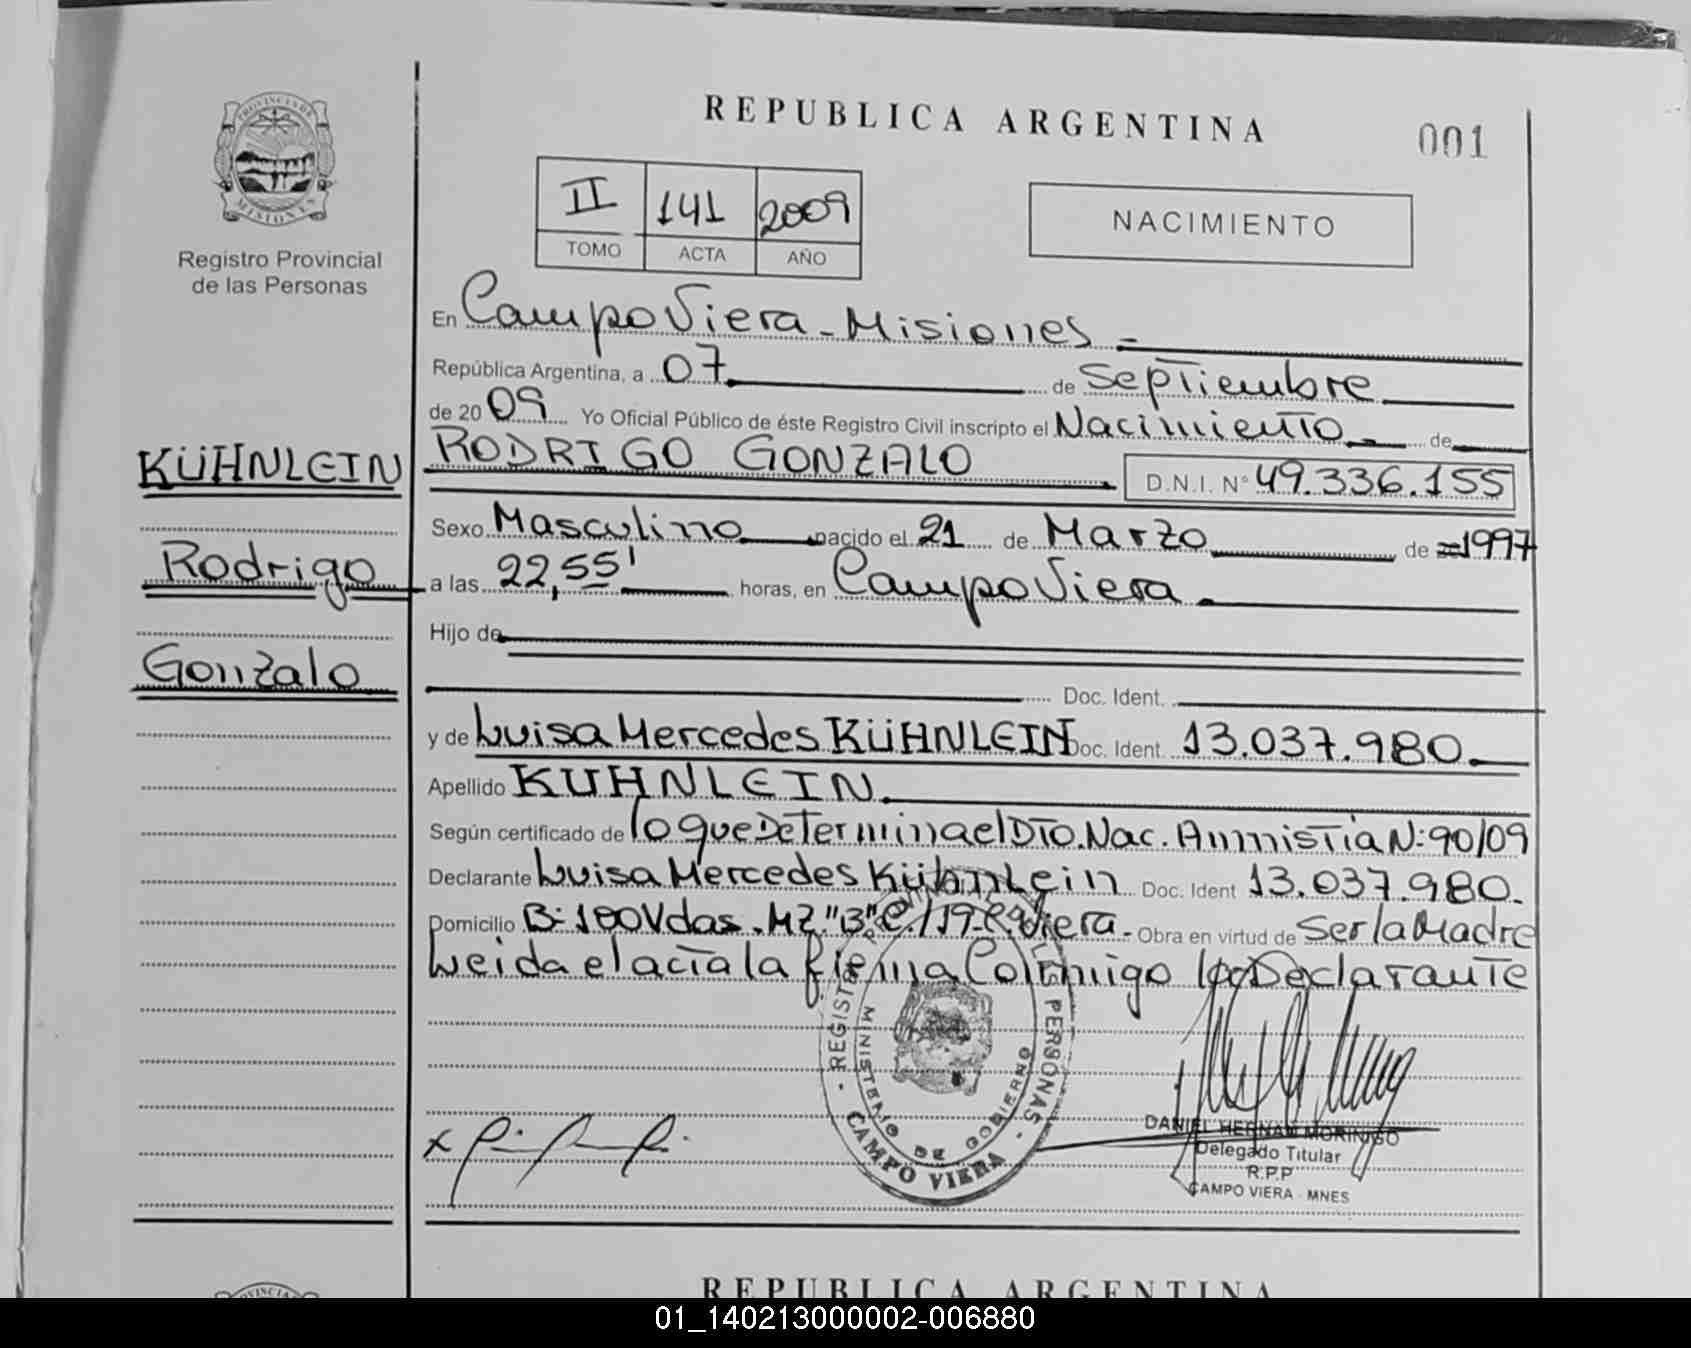 REPUBLICA ARGENTINA
001
PROVINCIA DE
MISIONES
Registro Provincial
de las Personas
II 141 2009
TOMO ACTA AÑO
NACIMIENTO
En Campo Viera - Misiones -
República Argentina, a 07 de Septiembre
de 2009 Yo Oficial Público de éste Registro Civil inscripto el Nacimiento de
KÜHNLEIN
RODRIGO GONZALO D.N.I. N° 49.336.155
Sexo Masculino nacido el 21 de Marzo de 1997
Rodrigo
a las 22,55' horas, en Campo Viera
Hijo de
Gonzalo
Doc. Ident.
y de Luisa Mercedes KÜHNLEIN Doc. Ident. 13.037.980.
Apellido KUHNLEIN
Según certificado de lo que Determina el DTO. Nac. Amnistia N: 90/09
Declarante Luisa Mercedes Kühnlein Doc. Ident 13.037.980.
Domicilio B: 100 Vdas. MZ "B" C/19 - C. Viera - Obra en virtud de Ser la Madre
Leida el acta la firma Conmigo la Declarante
REGISTRO PERSONAS
MINISTERIO DE GOBIERNO
CAMPO VIERA
DANIEL HERNAN MORINIGO
Delegado Titular
R.P.P
CAMPO VIERA - MNES
REPUBLICA ARGENTINA
01_140213000002-006880